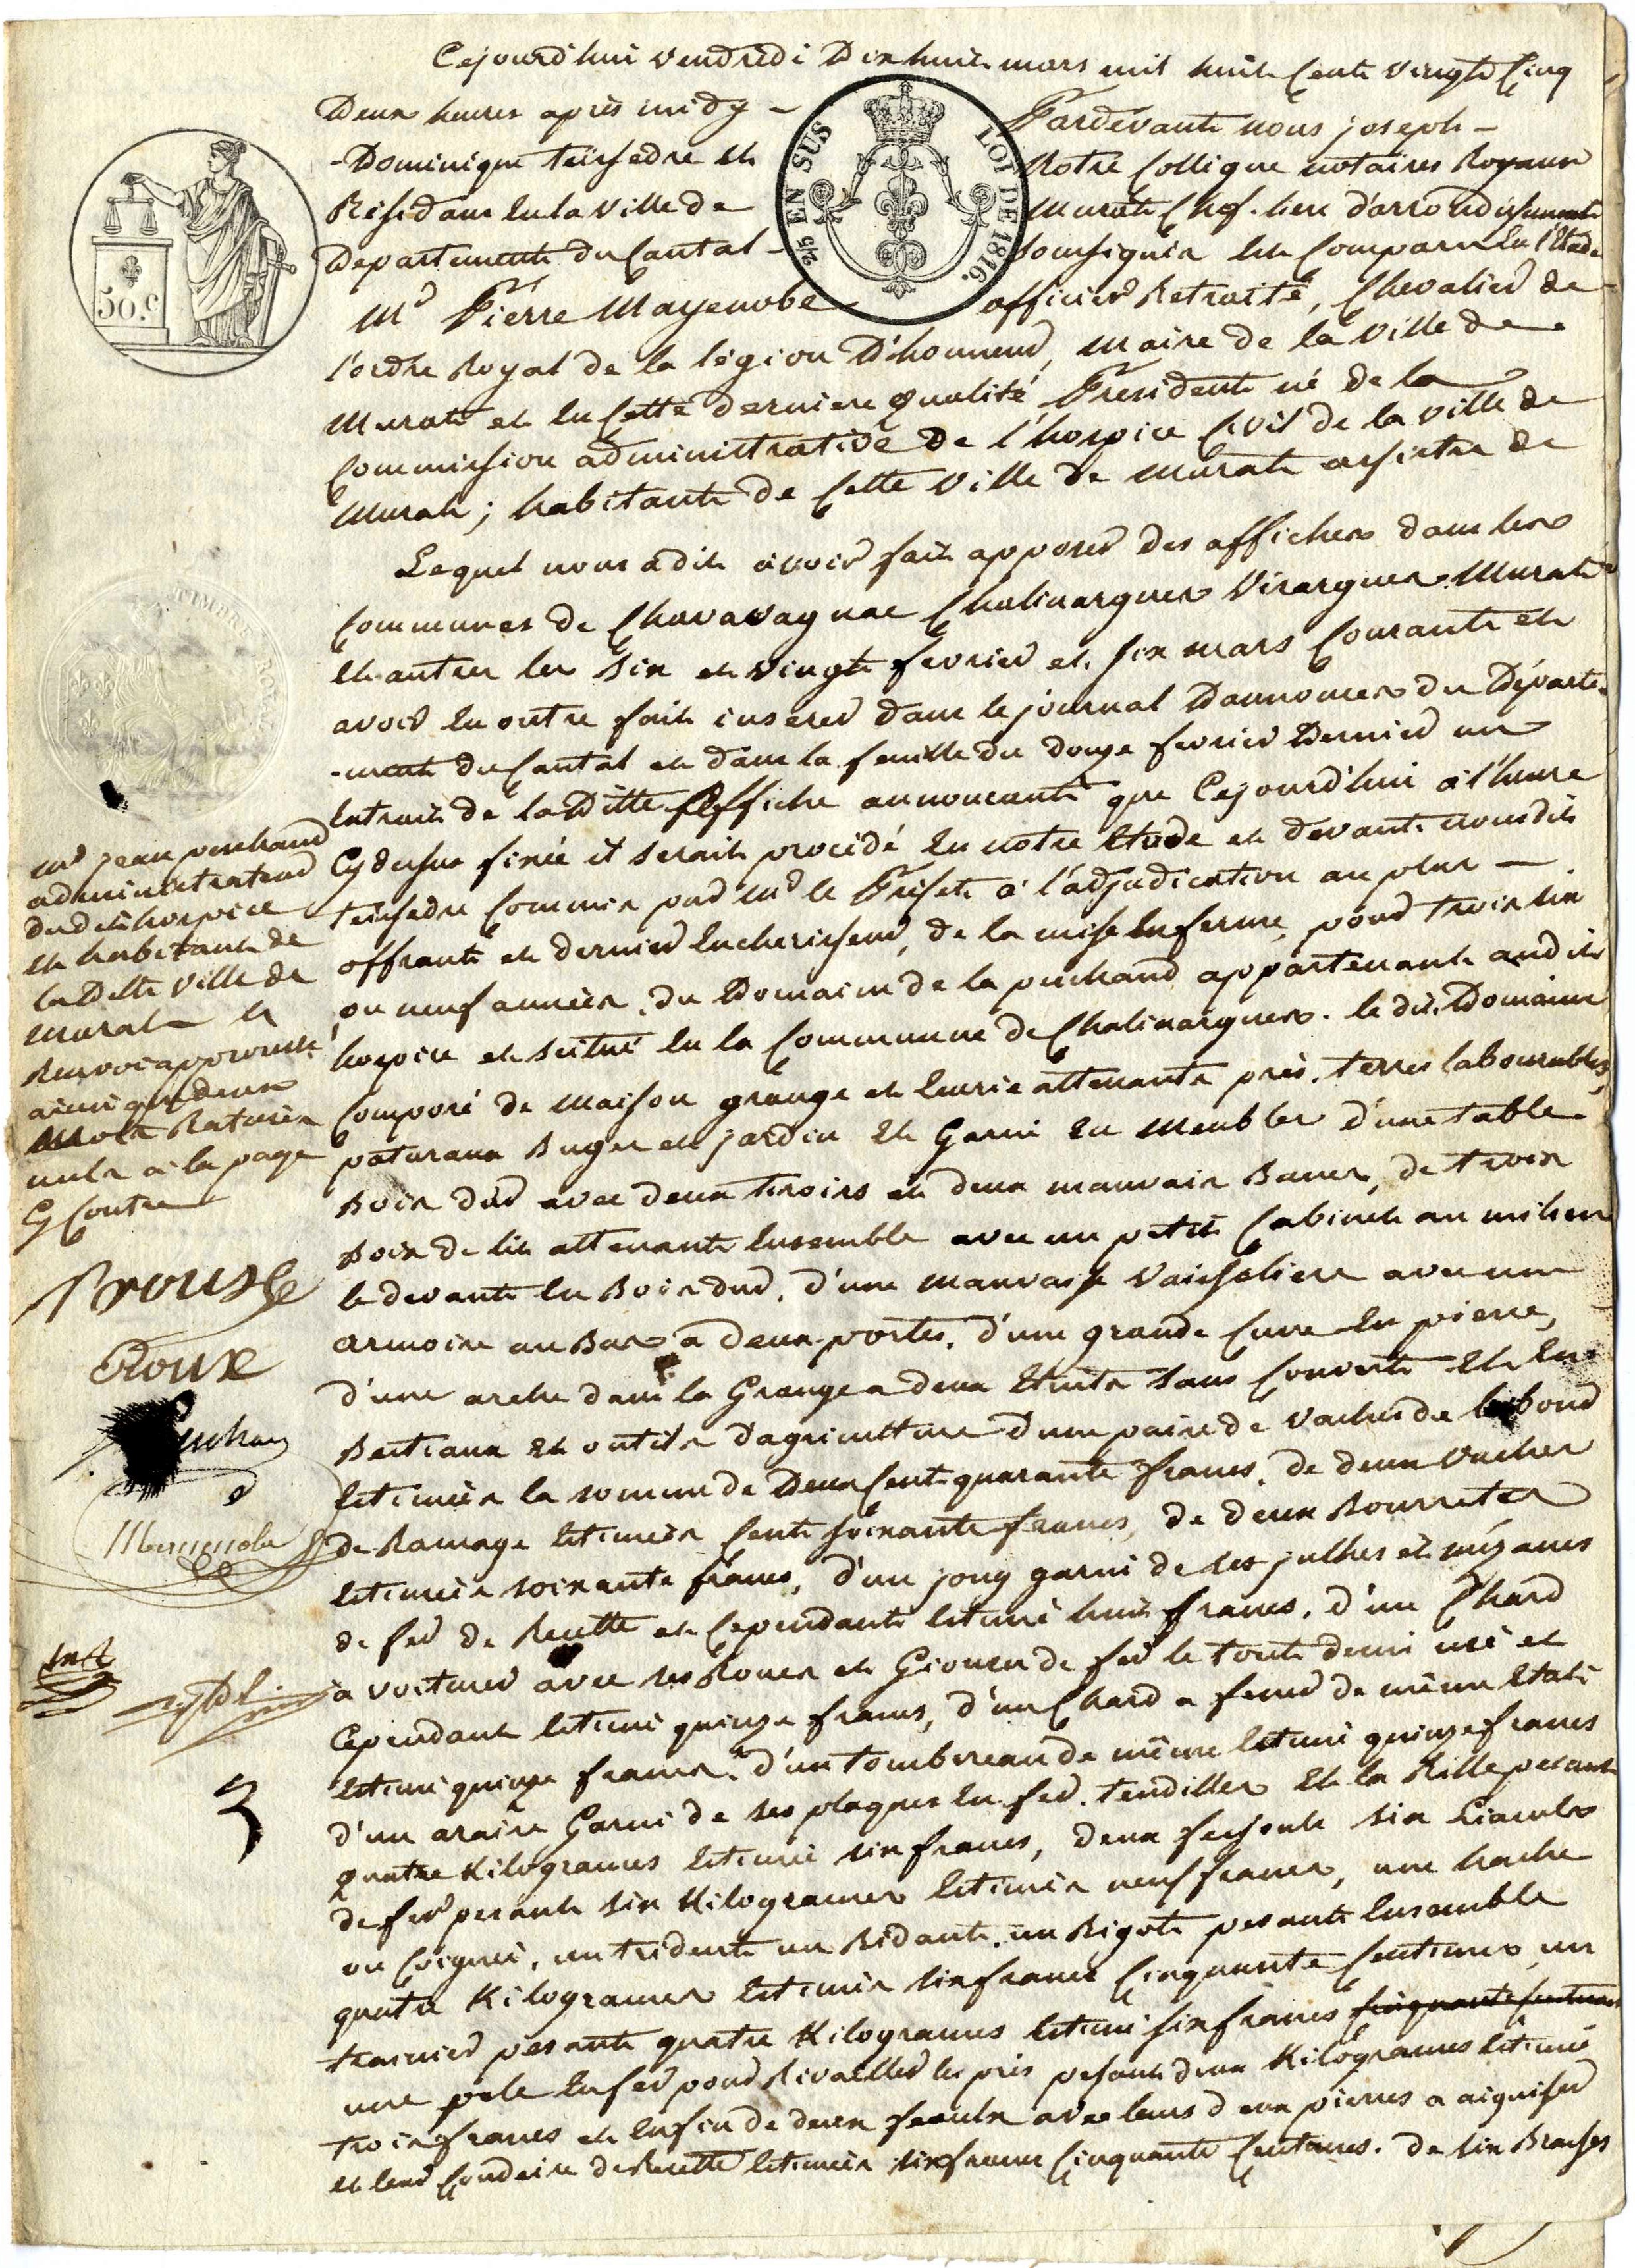 Cejourd'hui vendredi Dix huit mars mil huit Cent vingt Cinq
Deux heures après midy – Pardevant nous joseph –
-Dominique teissedre et Notre Collègue notaires Royaux
Résidant en la ville de Murat Chef-lieu d'arrondissement
Département du Cantal – soussignés est Comparu en l'Etude
Mr Pierre Mayenobe officier Retraité, Chevalier de
l'ordre Royal de la légion D'honneur, Maire de la ville de
Murat et en Cette dernière qualité Président né de la
Commission administrative De l'hospice Civil de la ville de
Murat ; habitant de Cette ville de Murat assisté de
Lequel nous a dit avoir fait apposer des affiches dans les
Communes de Chavavagnac Chalinargues Virargues Murat
et autres les six et vingt fevrier et six mars Courant et
avoir en outre fait inserer dans le journal D'annonces du Départe-
-ment du Cantal et dans la feuille du douze fevrier Dernier un
Extrait de la Ditte Affiche annoncant que Cejourd'hui à l'heure
Cy dessus fixée il serait procédé En notre Etude et devant nousdit
teissedre Commis par Mr le Préfet à l'adjudication au plus –
offrant et dernier Encherisseur, de la mise En ferme, pour trois six
ou neuf années, du Domaine de la puchaud appartenant audit
hospice et scitué En la Commune de Chalinargues. le dit Domaine
Composé de Maison grange et Ecurie attenante prés, terres labourables,
paturaux Buges et jardin Et Garni En Meubles d'une table
Bois dur avec deux tiroirs et deux mauvais Bancs, de trois
Bois de lit attenants Ensemble avec un petit Cabinet au milieu
le devant En Bois dur, d'une mauvaise vaisseliere avec une
armoire au Bas a deux portes, d'une grande Cuve En pierre,
d'une arche dans la Grange a deux Etuits sans Couvert Et En
Bestiaux Et outils d'agriculture D'une paire de vaches de labour
Estimées la somme de Deux Cent quarante francs, de deux vaches
de Ramage Estimées Cent soixante francs, de deux Bourretes
Estimées soixante francs, d'un joug garni de ses julhes et
de fer de Recette et Cependant Estimé huit francs, d'un Chard
a voiturer avec ses Roues et de fer le tout demi usé et
Cependant Estimé quinze francs, d'un Chard a fumer de même Etat
Estimé quinze francs, d'un tombereau de même Estimé quinze francs
d'un araire Garni de ses plaques En fer, tendilles Et la Rille pesant
quatre Kilogrames Estimé six francs, deux fessouls six
de fer pesant six Kilogrames Estimés neuf francs, une hache
ou Coignée, un trident un Bidant, un Bigot pesant Ensemble
quatre Kilogrames Estimés six francs Cinquante Centimes, un
trainier pesant quatre Kilogrames Estimé six francs Cinquante Centimes
une pele En fer pour les prés pesant deux Kilogrames Estimé
trois francs et Enfin de deux avec leurs deux pierres a aiguiser
et leur de Recette Estimés six francs Cinquante Centimes. De six Brasses
Mr jean puchaud
administrateur
dudit hospice
et habitant de
la Ditte ville de
Murat
Renvoi approuvé
ainsi que deux
mots Raturés
nuls à la page
Cy Contre
Brousse
Roux
Mayenobe
3
50.C
2/5 EN SUS
LOI DE 1816.
TIMBRE ROYAL